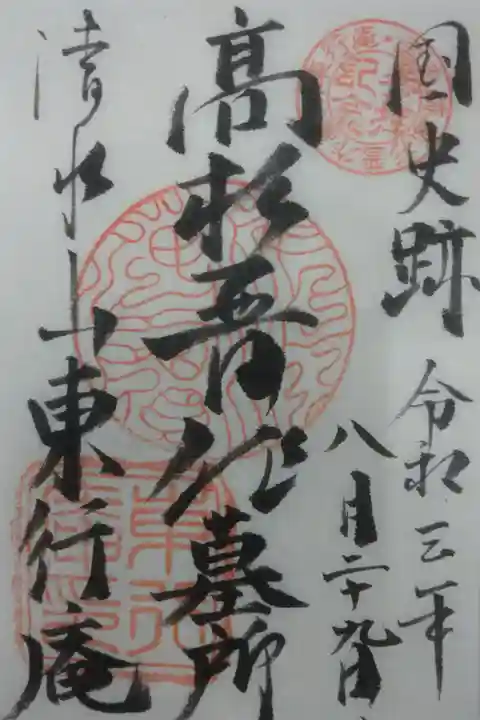 国史跡
令和三年
八月二十九日
高杉晋作墓所
清水山東行庵